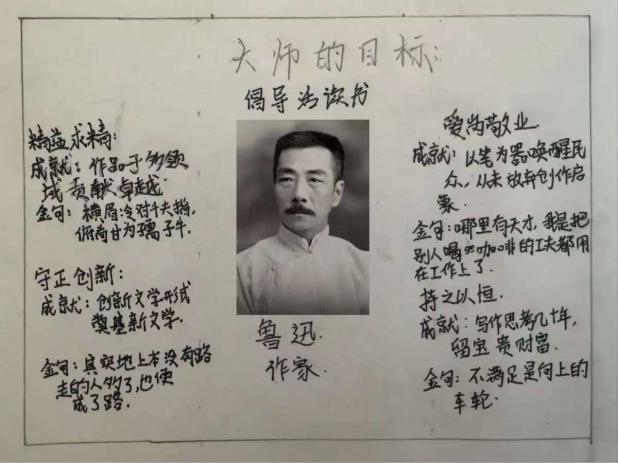 大师的目标:
倡导活读书
精益求精:
成就:作品于多领
域贡献卓越
金句:横眉冷对千夫指,
俯首甘为孺子牛.
守正创新:
成就:创新文学形式
奠基新文学.
金句:其实地上本没有路
走的人多了,也便
成了路.
鲁迅
作家.
爱岗敬业
成就:以笔为器唤醒民
众,从未放弃创作启
蒙.
金句:哪里有天才,我是把
别人喝咖啡的工夫都用
在工作上了.
持之以恒.
成就:写作思考几十年,
留宝贵财富.
金句:不满足是向上的
车轮.